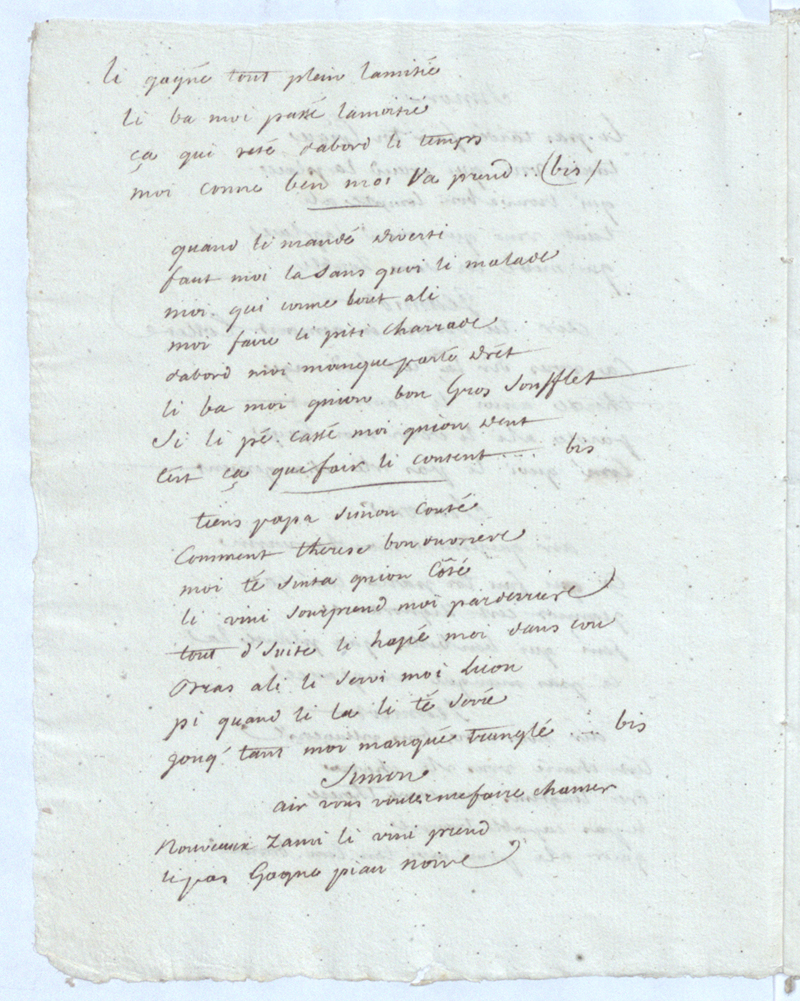 li gagné tout plein lamitié
li ba moi passé lamoitié
ça qui resté dabord li temps
moi conne ben moi va prend .. (bis)
quand li mandé diverti
faut moi la sans quoi li malade
moi qui conne bout ali
moi faire li piti charrade
dabord moi manque parlé drét
li ba moi quion bon Gros Soufflet
Si li pé cassé moi quion dent
C'ést ça que fair li content .... bis
tiens papa Simon couté
Comment therese bon ouvriere
moi té sinta quion Côté
li vini sourprend moi parderriere
tout d'suite li hapé moi dans cou
bras ali li servi moi licon
pi quand li la li té séré
jouq' tant moi manqué tranglé .. bis
Simon
air vous voulez me faire chanter
Nouveaux Zami li vini prend
li pas Gagné piau noire